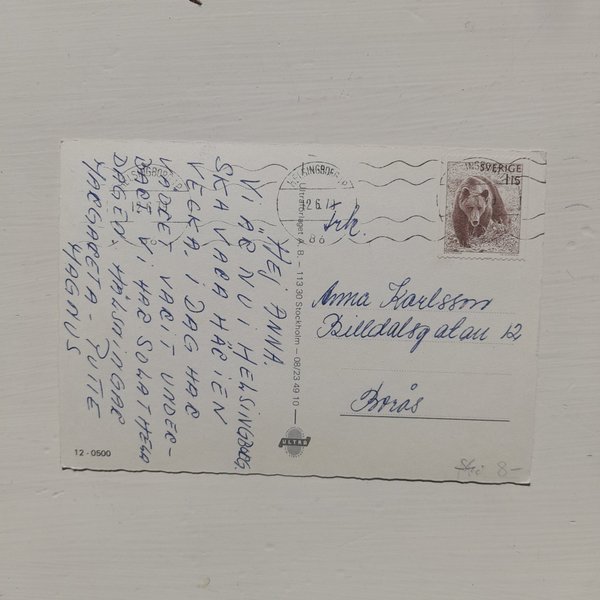 HEJ ANNA
VI ÄR NU I HELSINGBORG,
SKA VARA HÄR I EN
VECKA. I DAG HAR
VÄDRET VARIT UNDER-
BART VI HAR SOLAT HELA
DAGEN. HÄLSNINGAR
MARGARETA - PUTTE
MAGNUS
12-0500
Ultraförlaget A. B. — 113 30 Stockholm — 08/23 49 10
ULTRA
HELSINGBORG
86
SVERIGE
115
Frk.
Anna Karlsson
Billdalsgatan 12
Borås
8-